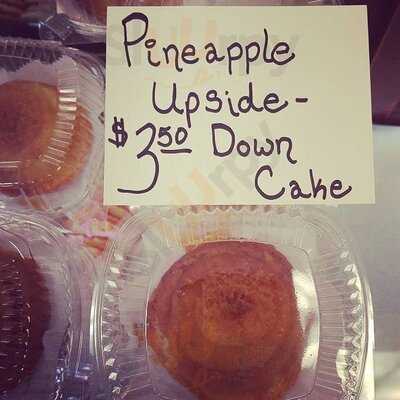 Pineapple
Upside-
$3.50 Down
Cake